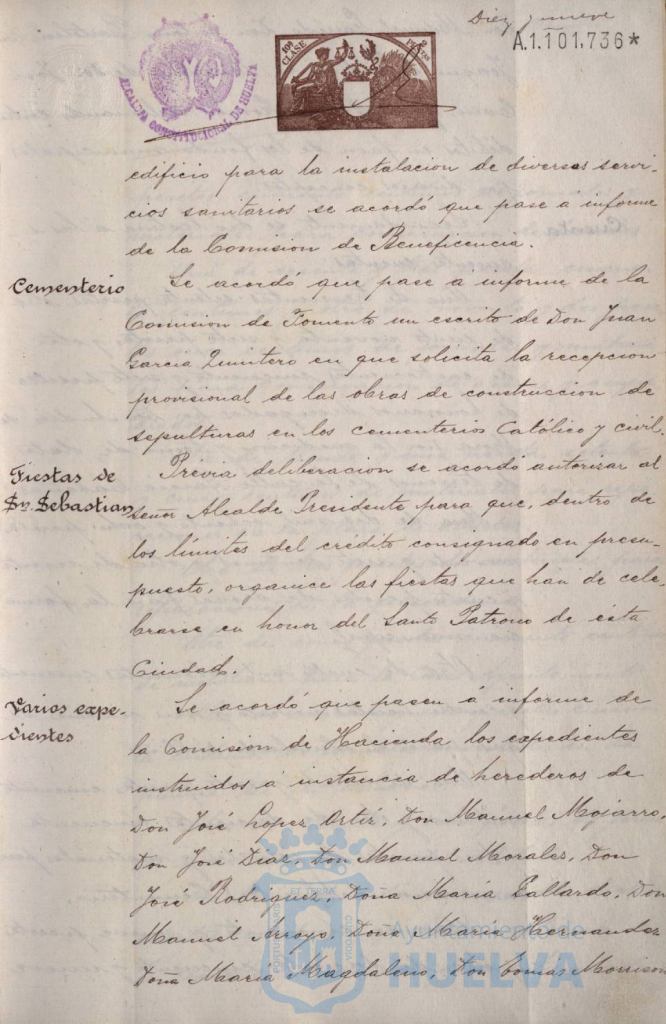 Diez y nueve
A.1.101,736*
ALCALDIA CONSTITUCIONAL DE HUELVA
10ª CLASE
2 PESETAS
edificio para la instalacion de diversos servi-
cios sanitarios se acordó que pase á informe
de la Comision de Beneficencia.
Cementerio
Se acordó que pase á informe de la
Comision de Fomento un escrito de Don Juan
García Quintero en que solicita la recepcion
provisional de las obras de construccion de
sepulturas en los cementerios Católico y civil.
Fiestas de
Sn. Sebastian
Prévia deliberacion se acordó autorizar al
señor Alcalde Presidente para que, dentro de
los límites del crédito consignado en presu-
puesto, organice las fiestas que han de cele-
brarse en honor del Santo Patrono de ésta
Ciudad.
Varios expe-
dientes
Se acordó que pasen á informe de
la Comision de Hacienda los expedientes
instruidos á instancia de herederos de
Don José Lopez Ortiz, Don Manuel Mojarro,
Don José Diaz, Don Manuel Morales, Don
José Rodriguez, Doña Maria Gallardo, Don
Manuel Arroyo, Doña Maria Hernandez
Doña Maria Magdaleno, Don Tomas Morrison
Ayuntamiento de
HUELVA